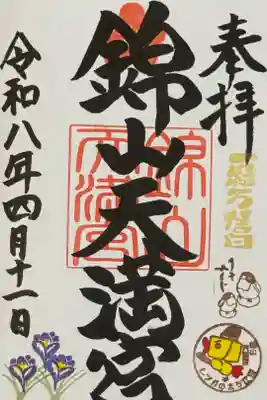 奉拝
錦山天満宮
錦山天満宮
令和八年四月十一日